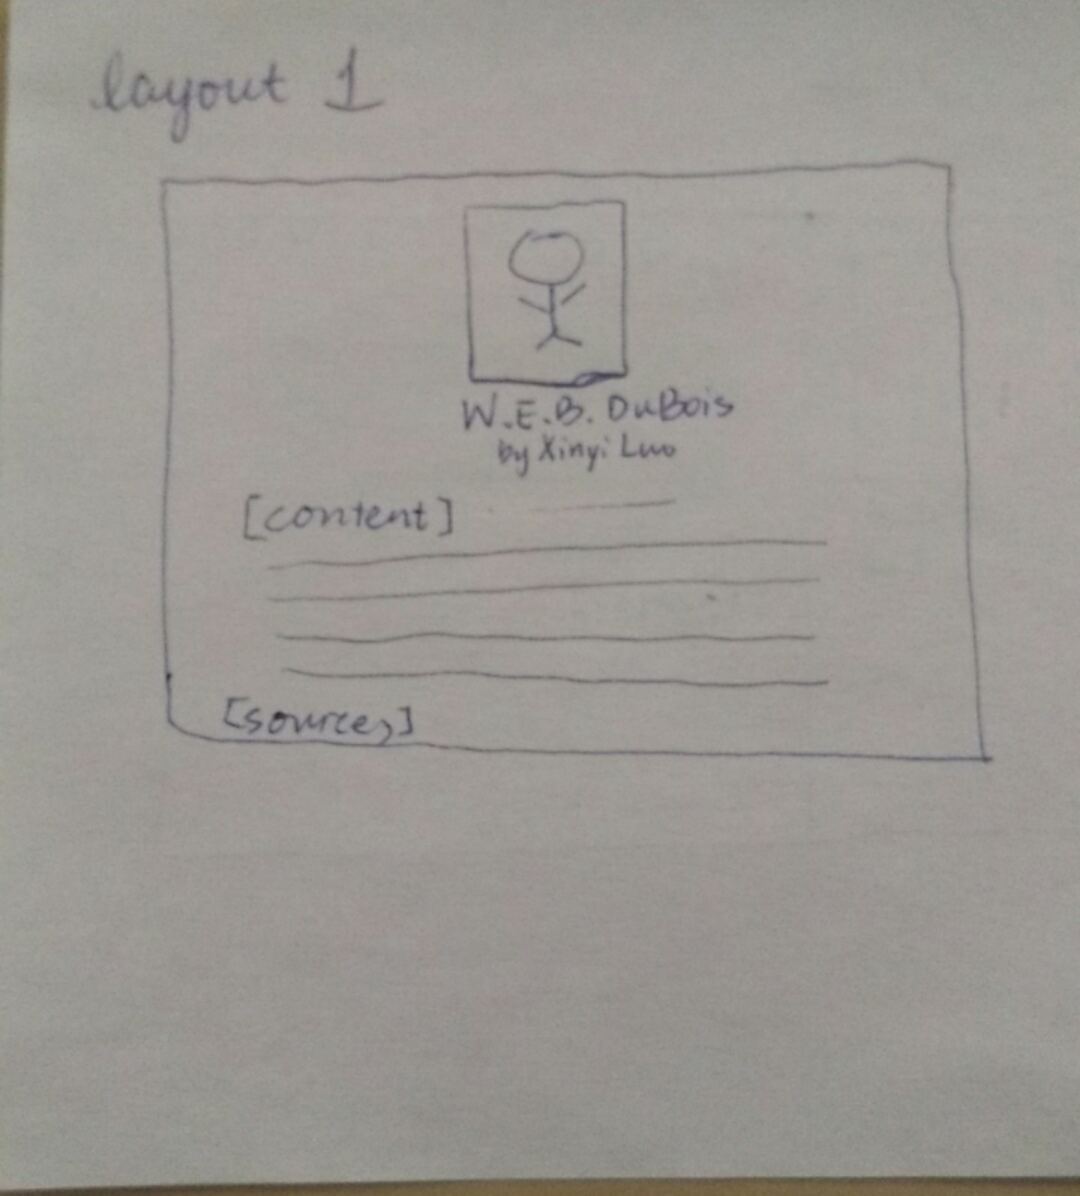 layout 1
W.E.B. DuBois
by Xinyi Luo
[content]
[sources]